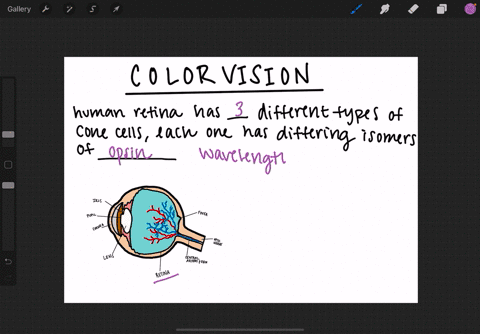 Gallery
COLOR VISION
human retina has 3 different types of
cone cells, each one has differing isomers
of opsin wavelength
IRIS
PUPIL
CORNEA
LENS
RETINA
FOVEA